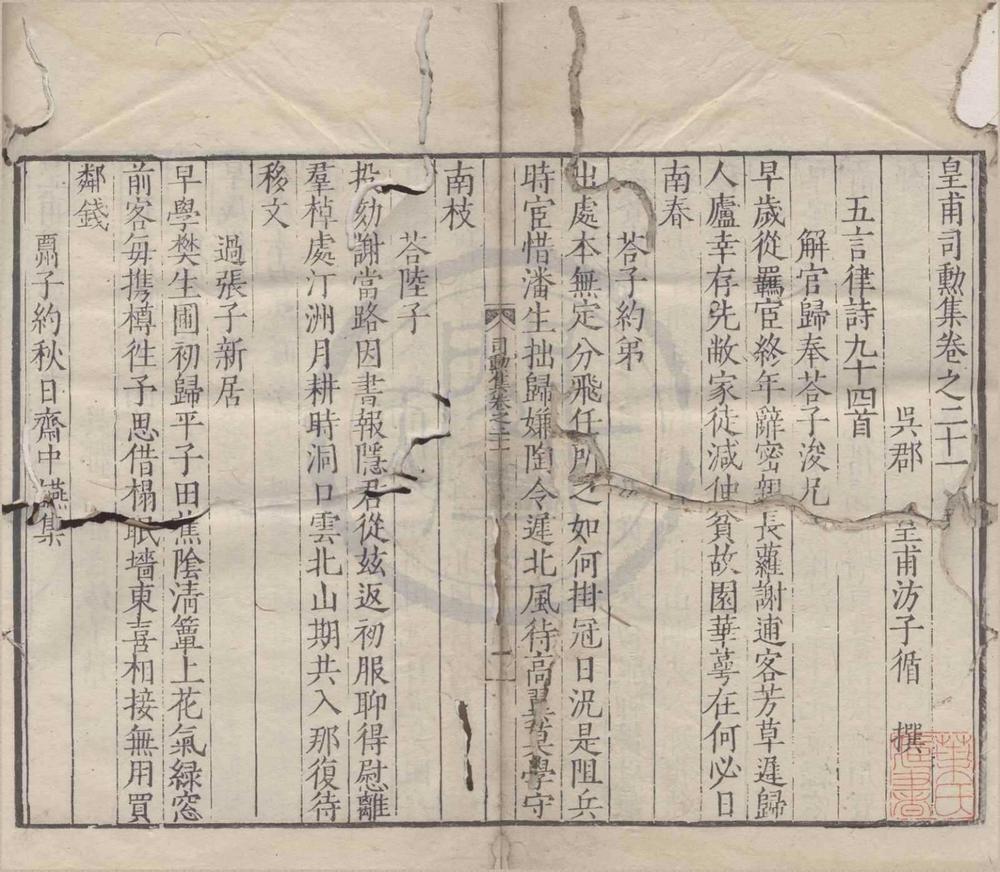 皇甫司勲集卷之二十一
吳郡 皇甫汸子循 撰
五言律詩九十四首
解官歸奉荅子浚兄
早歲從羈宦終年辭密親長蘿謝逋客芳草遲歸
人廬幸存先敝家徒減仲貧故園華萼在何必日
南春
荅子約弟
出處本無定分飛任所之如何掛冠日況是阻兵
時宦惜潘生拙歸嫌陶令遲北風待高翼莫學守
司勳集卷之二十一
一
南枝
荅陸子
投劾謝當路因書報隱君從玆返初服聊得慰離
羣棹處汀洲月耕時洞口雲北山期共入那復待
移文
過張子新居
早學樊生圃初歸平子田蕉陰淸簟上花氣緑窓
前客每携樽徃予思借榻眠墻東喜相接無用買
鄰錢
粛子約秋日齋中讌集